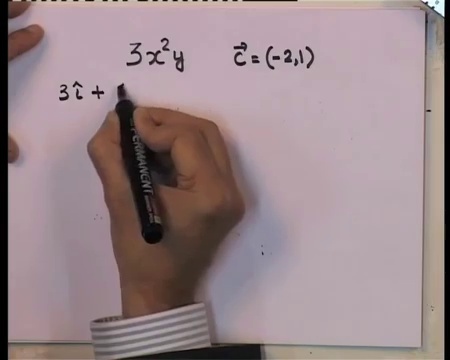 3x²y   c⃗ = (-2,1)
3î +
PERMANENT